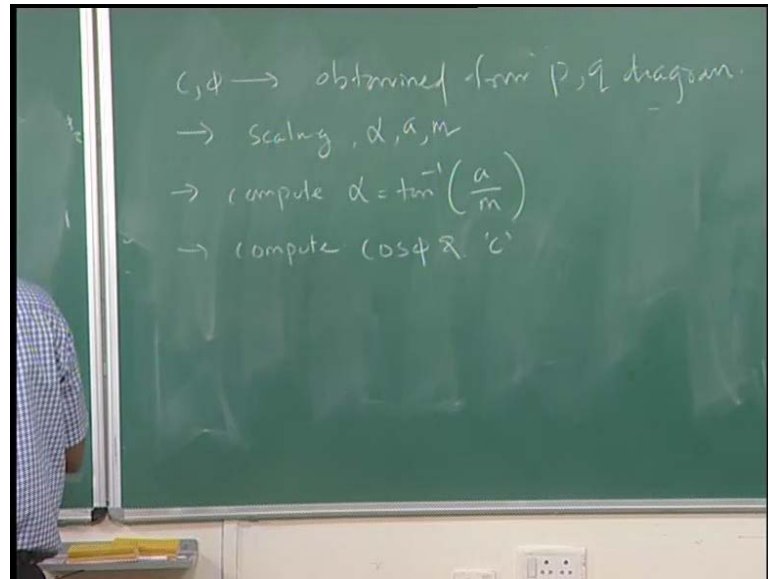 c, φ → obtained from p, q diagram.
→ scaling, α, a, m
→ compute α = tan⁻¹(a/m)
→ compute cosφ & 'c'